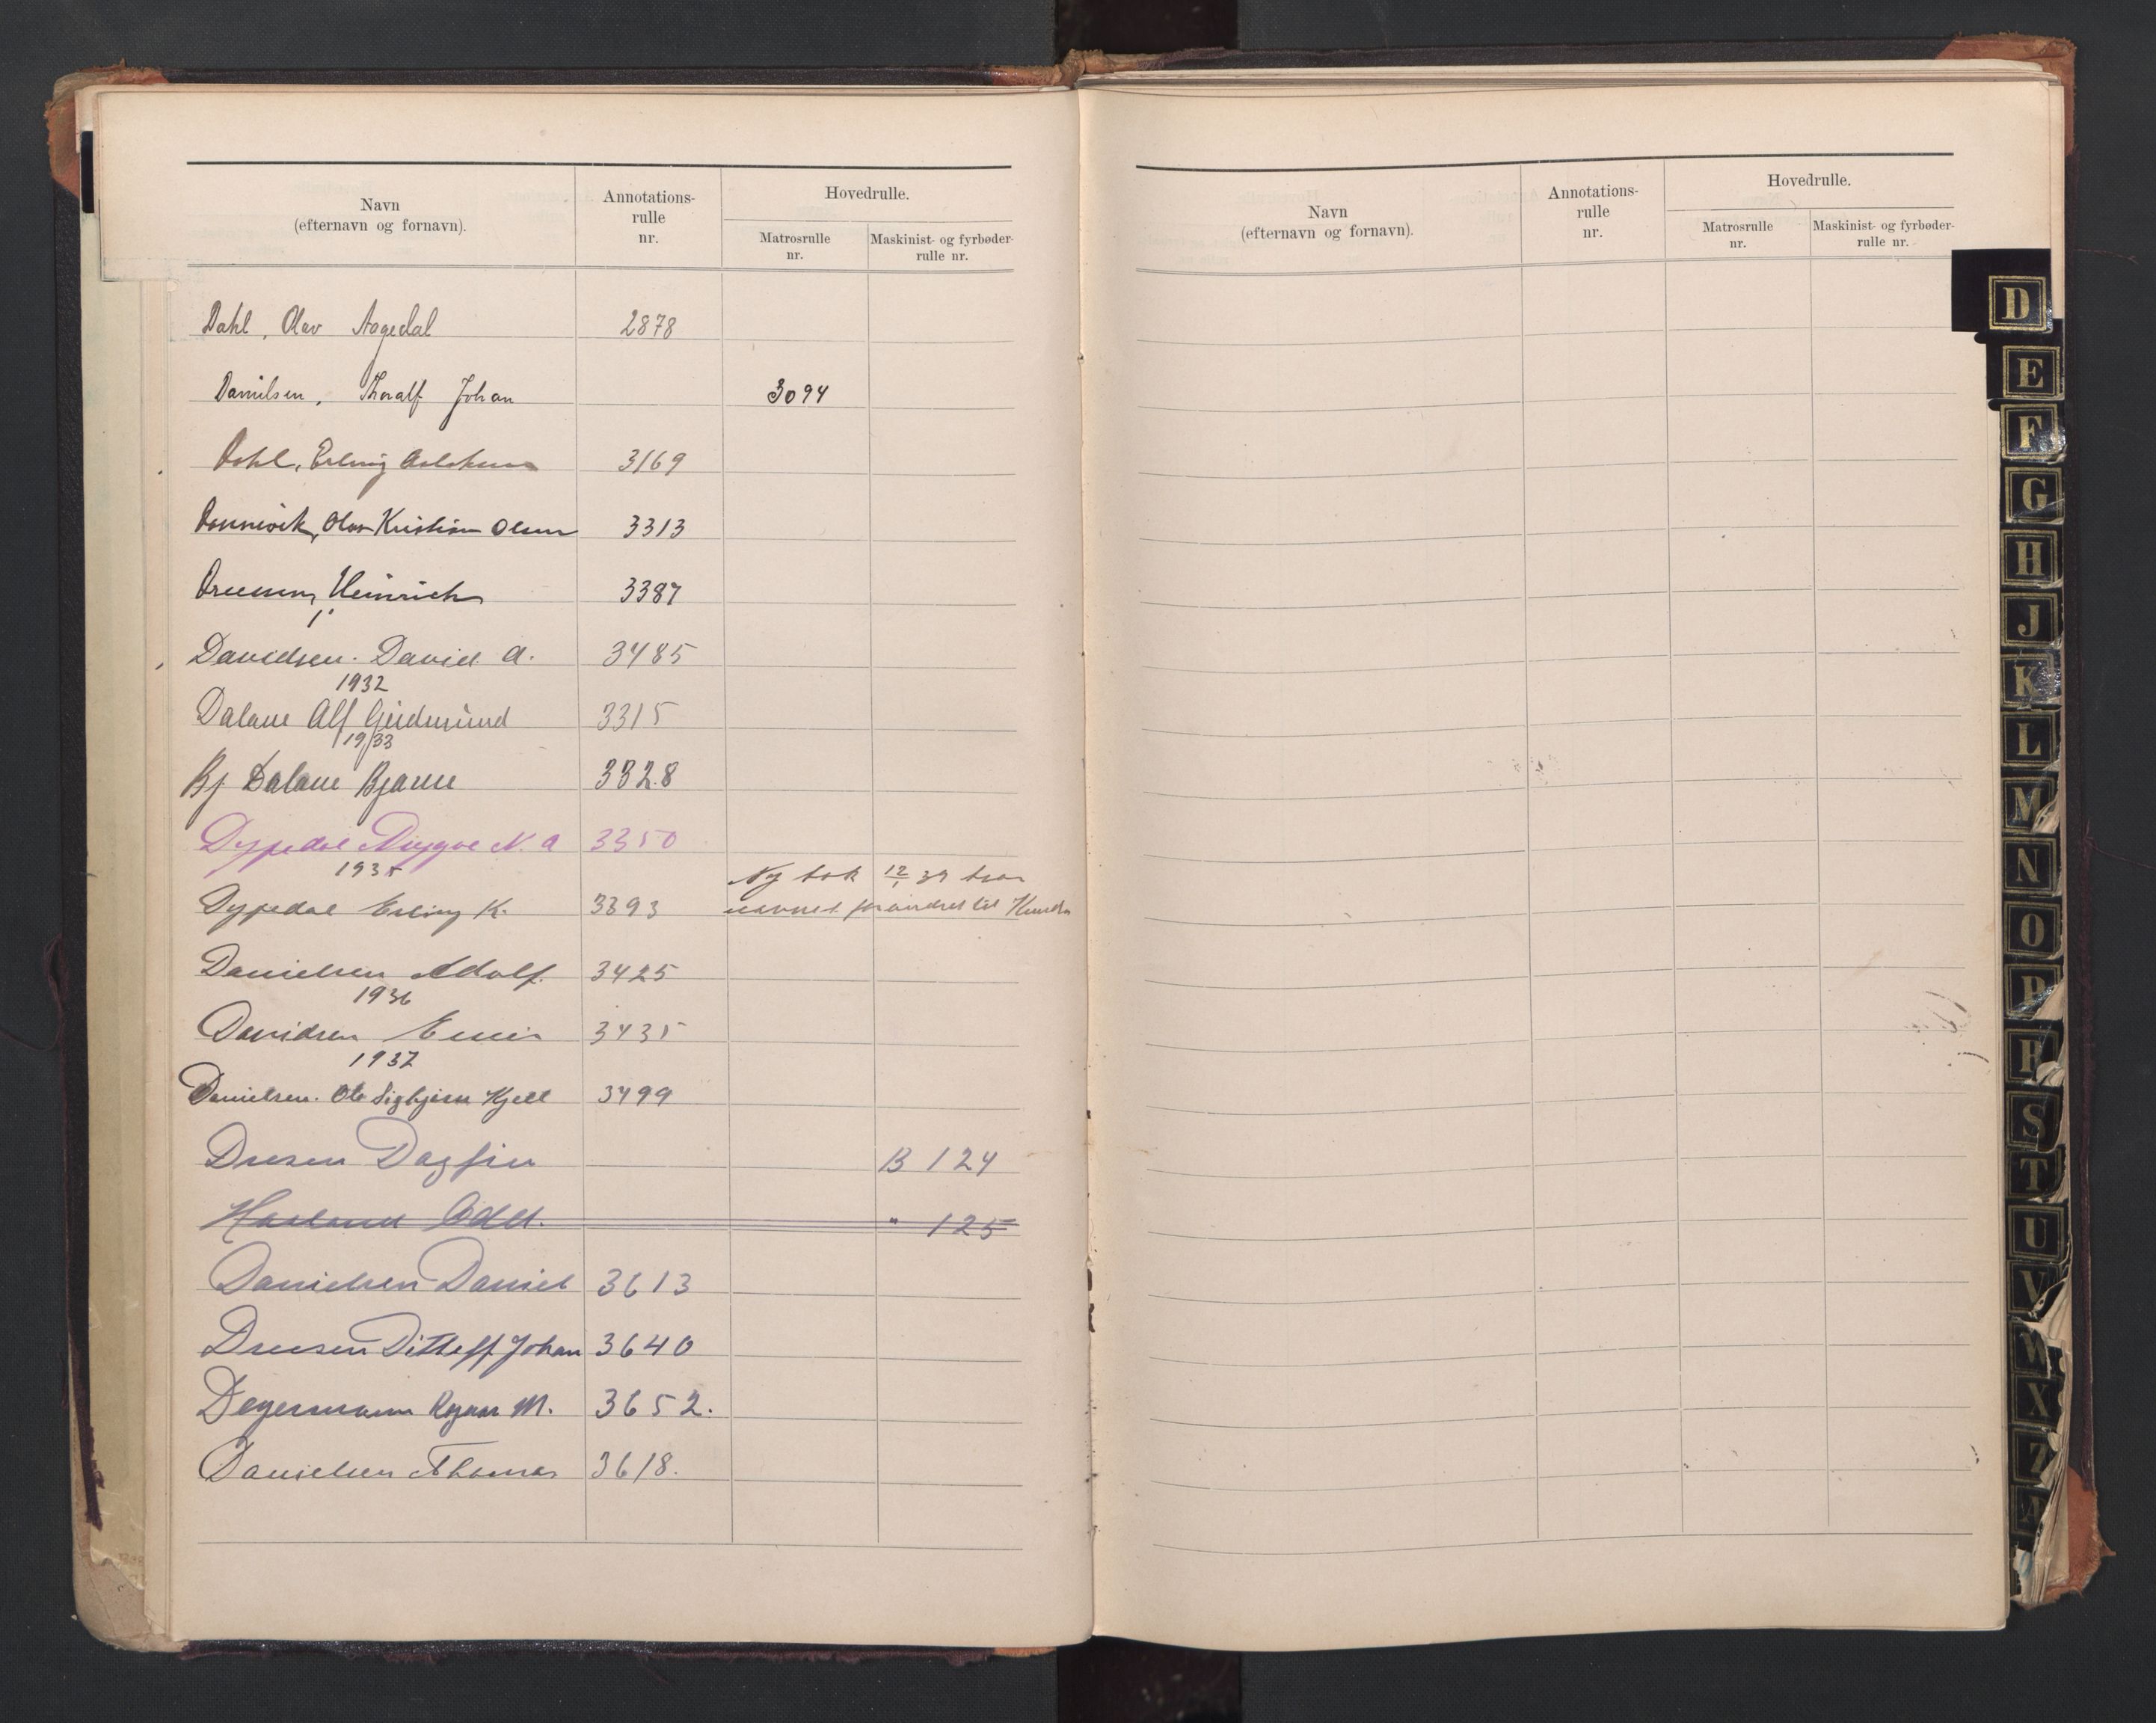 Navn
(efternavn og fornavn).
Annotations-
rulle
nr.
Hovedrulle.
Matrosrulle
nr.
Maskinist- og fyrbøder-
rulle nr.
Dahl, Olav Aagedal 2878
Danilsen, Thoralf Johan 3094
Dahl, Erling 3169
Dannevik, Olav Kristian Olsen 3313
Dreesen, Heinrich 3387
Davidsen. David A. 3485
1932
Dalane Alf Geirdmund 3315
1933
Bj Dalane Bjarne 3328
Dypedal Trygve N. A 3350
1935
Ny bok 12/1 37 hvor
Dypedal Erling K. 3393 navnet forandret til
Danielsen Adolf. 3425
1936
Davidsen 3435
1937
Danielsen. Ole Sigbjørn Kjell 3499
Dresen Dagfin B 124
Havland Odd. " 125
Danielsen Daniel 3613
Dreesen Ditleff Johan 3640
Degermann Ragnar M. 3652.
Danielsen Thomas 3618.
Navn
(efternavn og fornavn).
Annotations-
rulle
nr.
Hovedrulle.
Matrosrulle
nr.
Maskinist- og fyrbøder-
rulle nr.
D
E
F
G
H
J
K
L
M
N
O
P
R
S
T
U
V
W
X
Z